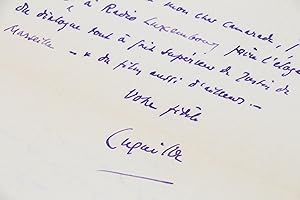 mon cher Camarade,
à Radio Luxembourg faire l'éloge
du dialogue tout à fait supérieur de Justin de
Marseille — * du film aussi d'ailleurs. —
Votre fidèle